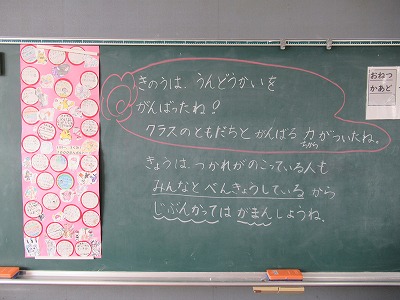 きのうは、うんどうかいを
がんばったね!
クラスのともだちと がんばる 力がついたね。
ちから
きょうは、つかれがのこっている人も
みんなとべんきょうしている から
じぶんかっては がまんしようね。
おねつ
かあど